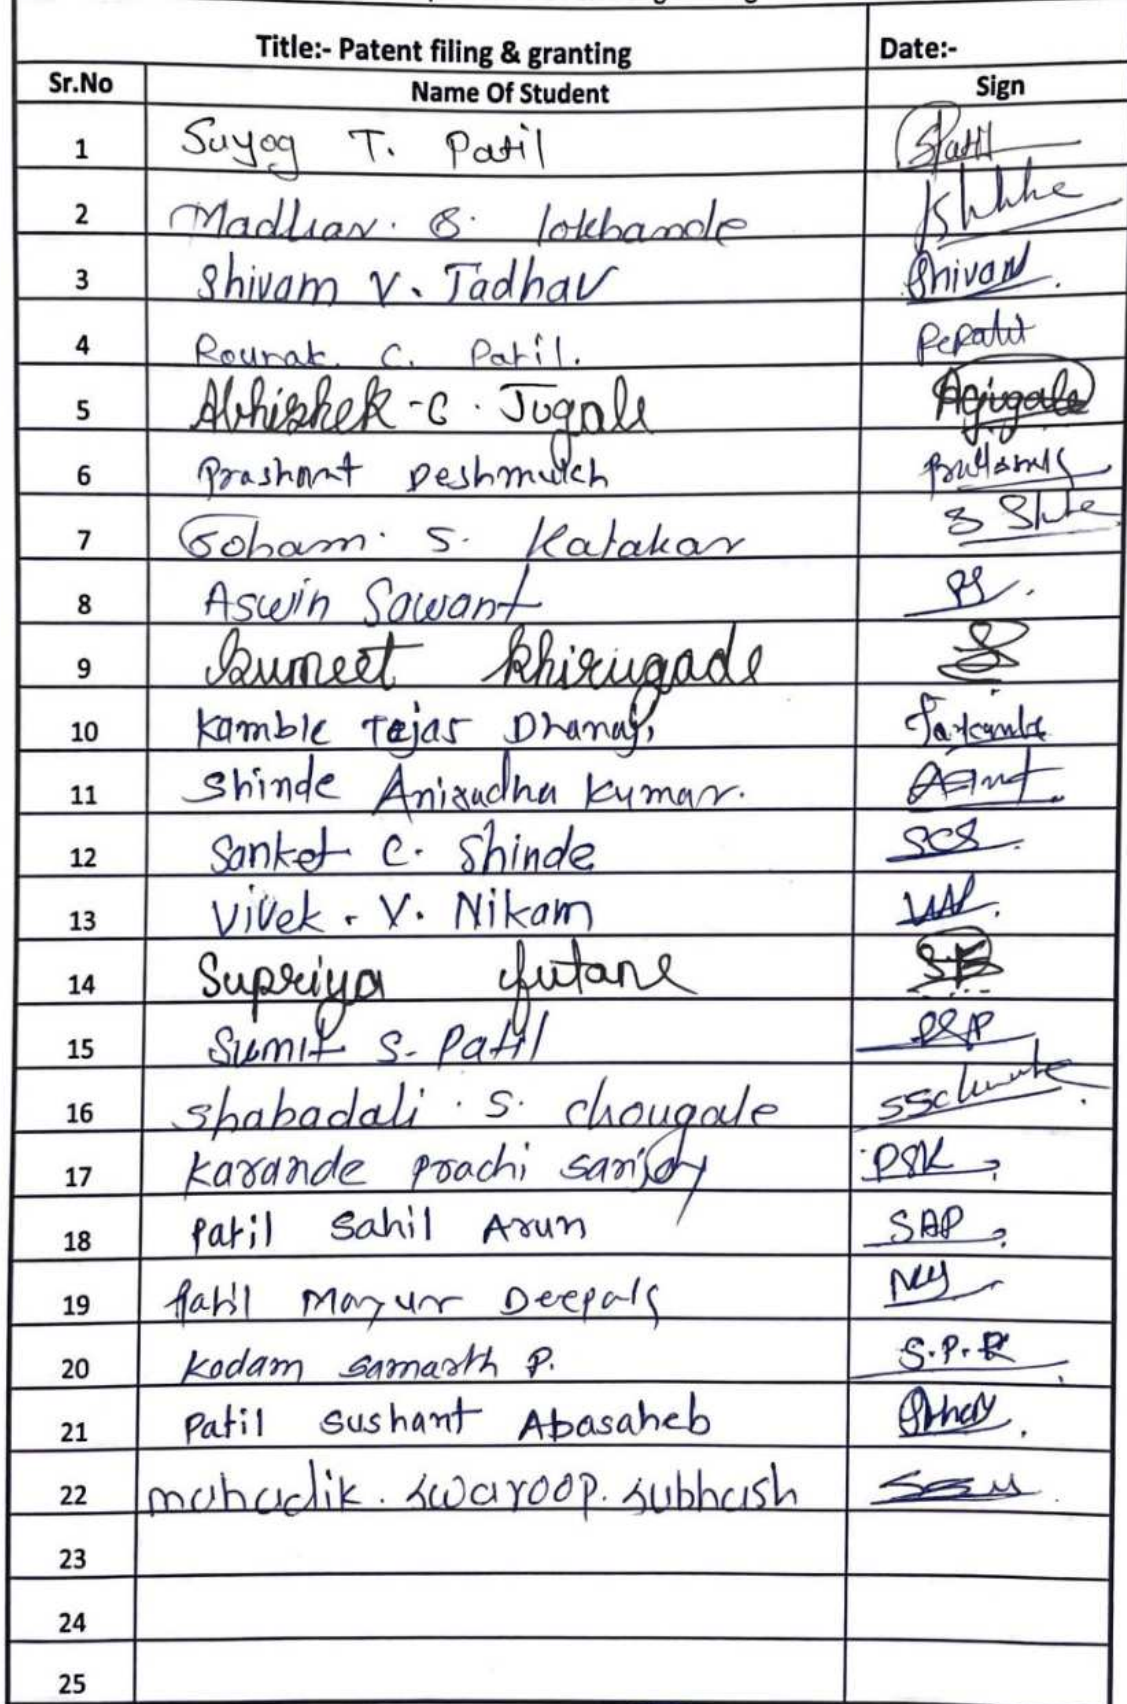 Title:- Patent filing & granting Date:-
Sr.No Name Of Student Sign
1 Suyog T. Patil SPatil
2 Madhav. B. lokhande
3 Shivam V. Jadhav Shivam
4 Rounak. C. Patil.
5 Abhishek - C. Jugale Acjugale
6 Prashant Deshmukh
7 Soham. S. Katakar
8 Aswin Sawant
9 Sumeet Khirugade
10 Kamble Tejas Dhanaji
11 Shinde Anirudha Kumar.
12 Sanket C. Shinde SCS.
13 Vivek. V. Nikam
14 Supriya futane
15 Sumit S. Patil
16 Shabadali. S. chougale
17 Karande Prachi Sanjay PSK
18 Patil Sahil Arun SAP
19 Patil Mayur Deepak
20 Kadam Samarth P. S.P.K
21 Patil Sushant Abasaheb
22 mahadik. swaroop. subhash
23
24
25